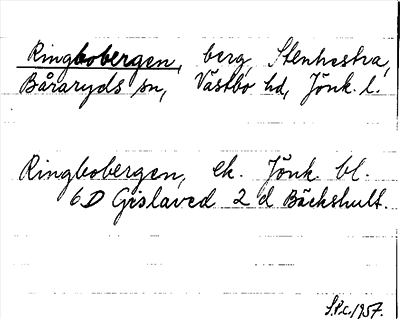 Ringbobergen, berg, Stenhestra,
Båraryds sn, Västbo hd, Jönk. l.
Ringbobergen, ek. Jönk. bl.
6D Gislaved 2 d Bäckshult.
1957.